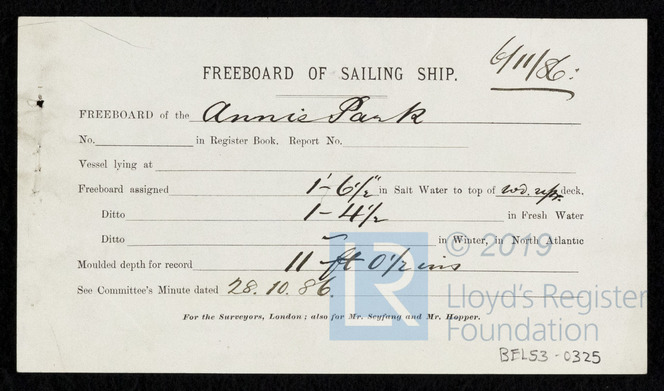 6/11/86.
FREEBOARD OF SAILING SHIP.
FREEBOARD of the Annie Park
No. in Register Book. Report No.
Vessel lying at
Freeboard assigned 1'-6½" in Salt Water to top of wd. upr. deck.
Ditto 1-4½ in Fresh Water
Ditto – in Winter, in North Atlantic
Moulded depth for record 11 ft 0½ ins
See Committee's Minute dated 28.10.86.
For the Surveyors, London; also for Mr. Seyfang and Mr. Hopper.
© 2019
LR
Lloyd's Register
Foundation
BELS3-0325